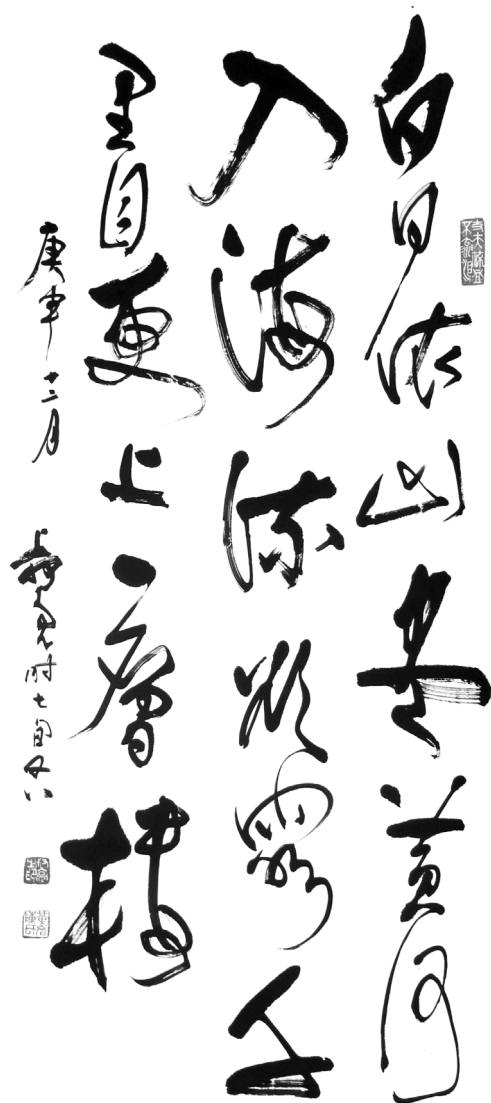 白日依山盡黄河
入海流欲窮千
里目更上一層樓
庚申十二月
时七旬又八